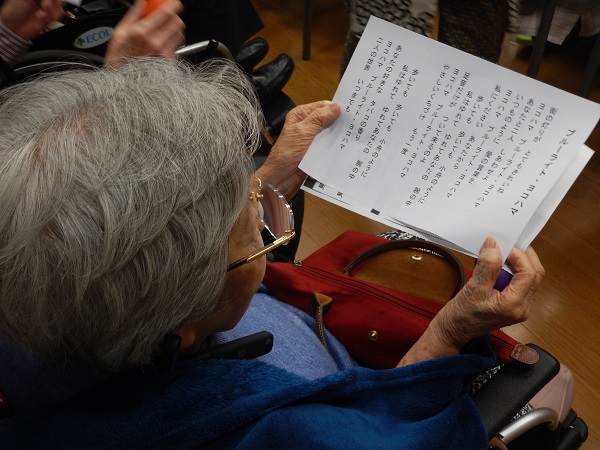 ECOL
ブルーライト ヨコハマ
街の灯りが とてもきれいね
ヨコハマ ブルーライト ヨコハマ
あなたとふたり しあわせよ
いつものように 愛の言葉を
ヨコハマ ブルーライト ヨコハマ
私にください あなたから
歩いても 歩いても 小舟のように
私はゆれて ゆれてあなたの 腕の中
足音だけが ついてくるのよ
ヨコハマ ブルーライト ヨコハマ
やさしいくちづけ もう一度
歩いても 歩いても 小舟のように
私はゆれて ゆれてあなたの 腕の中
あなたの好きな タバコの香り
ヨコハマ ブルーライト ヨコハマ
二人の世界 いつまでも